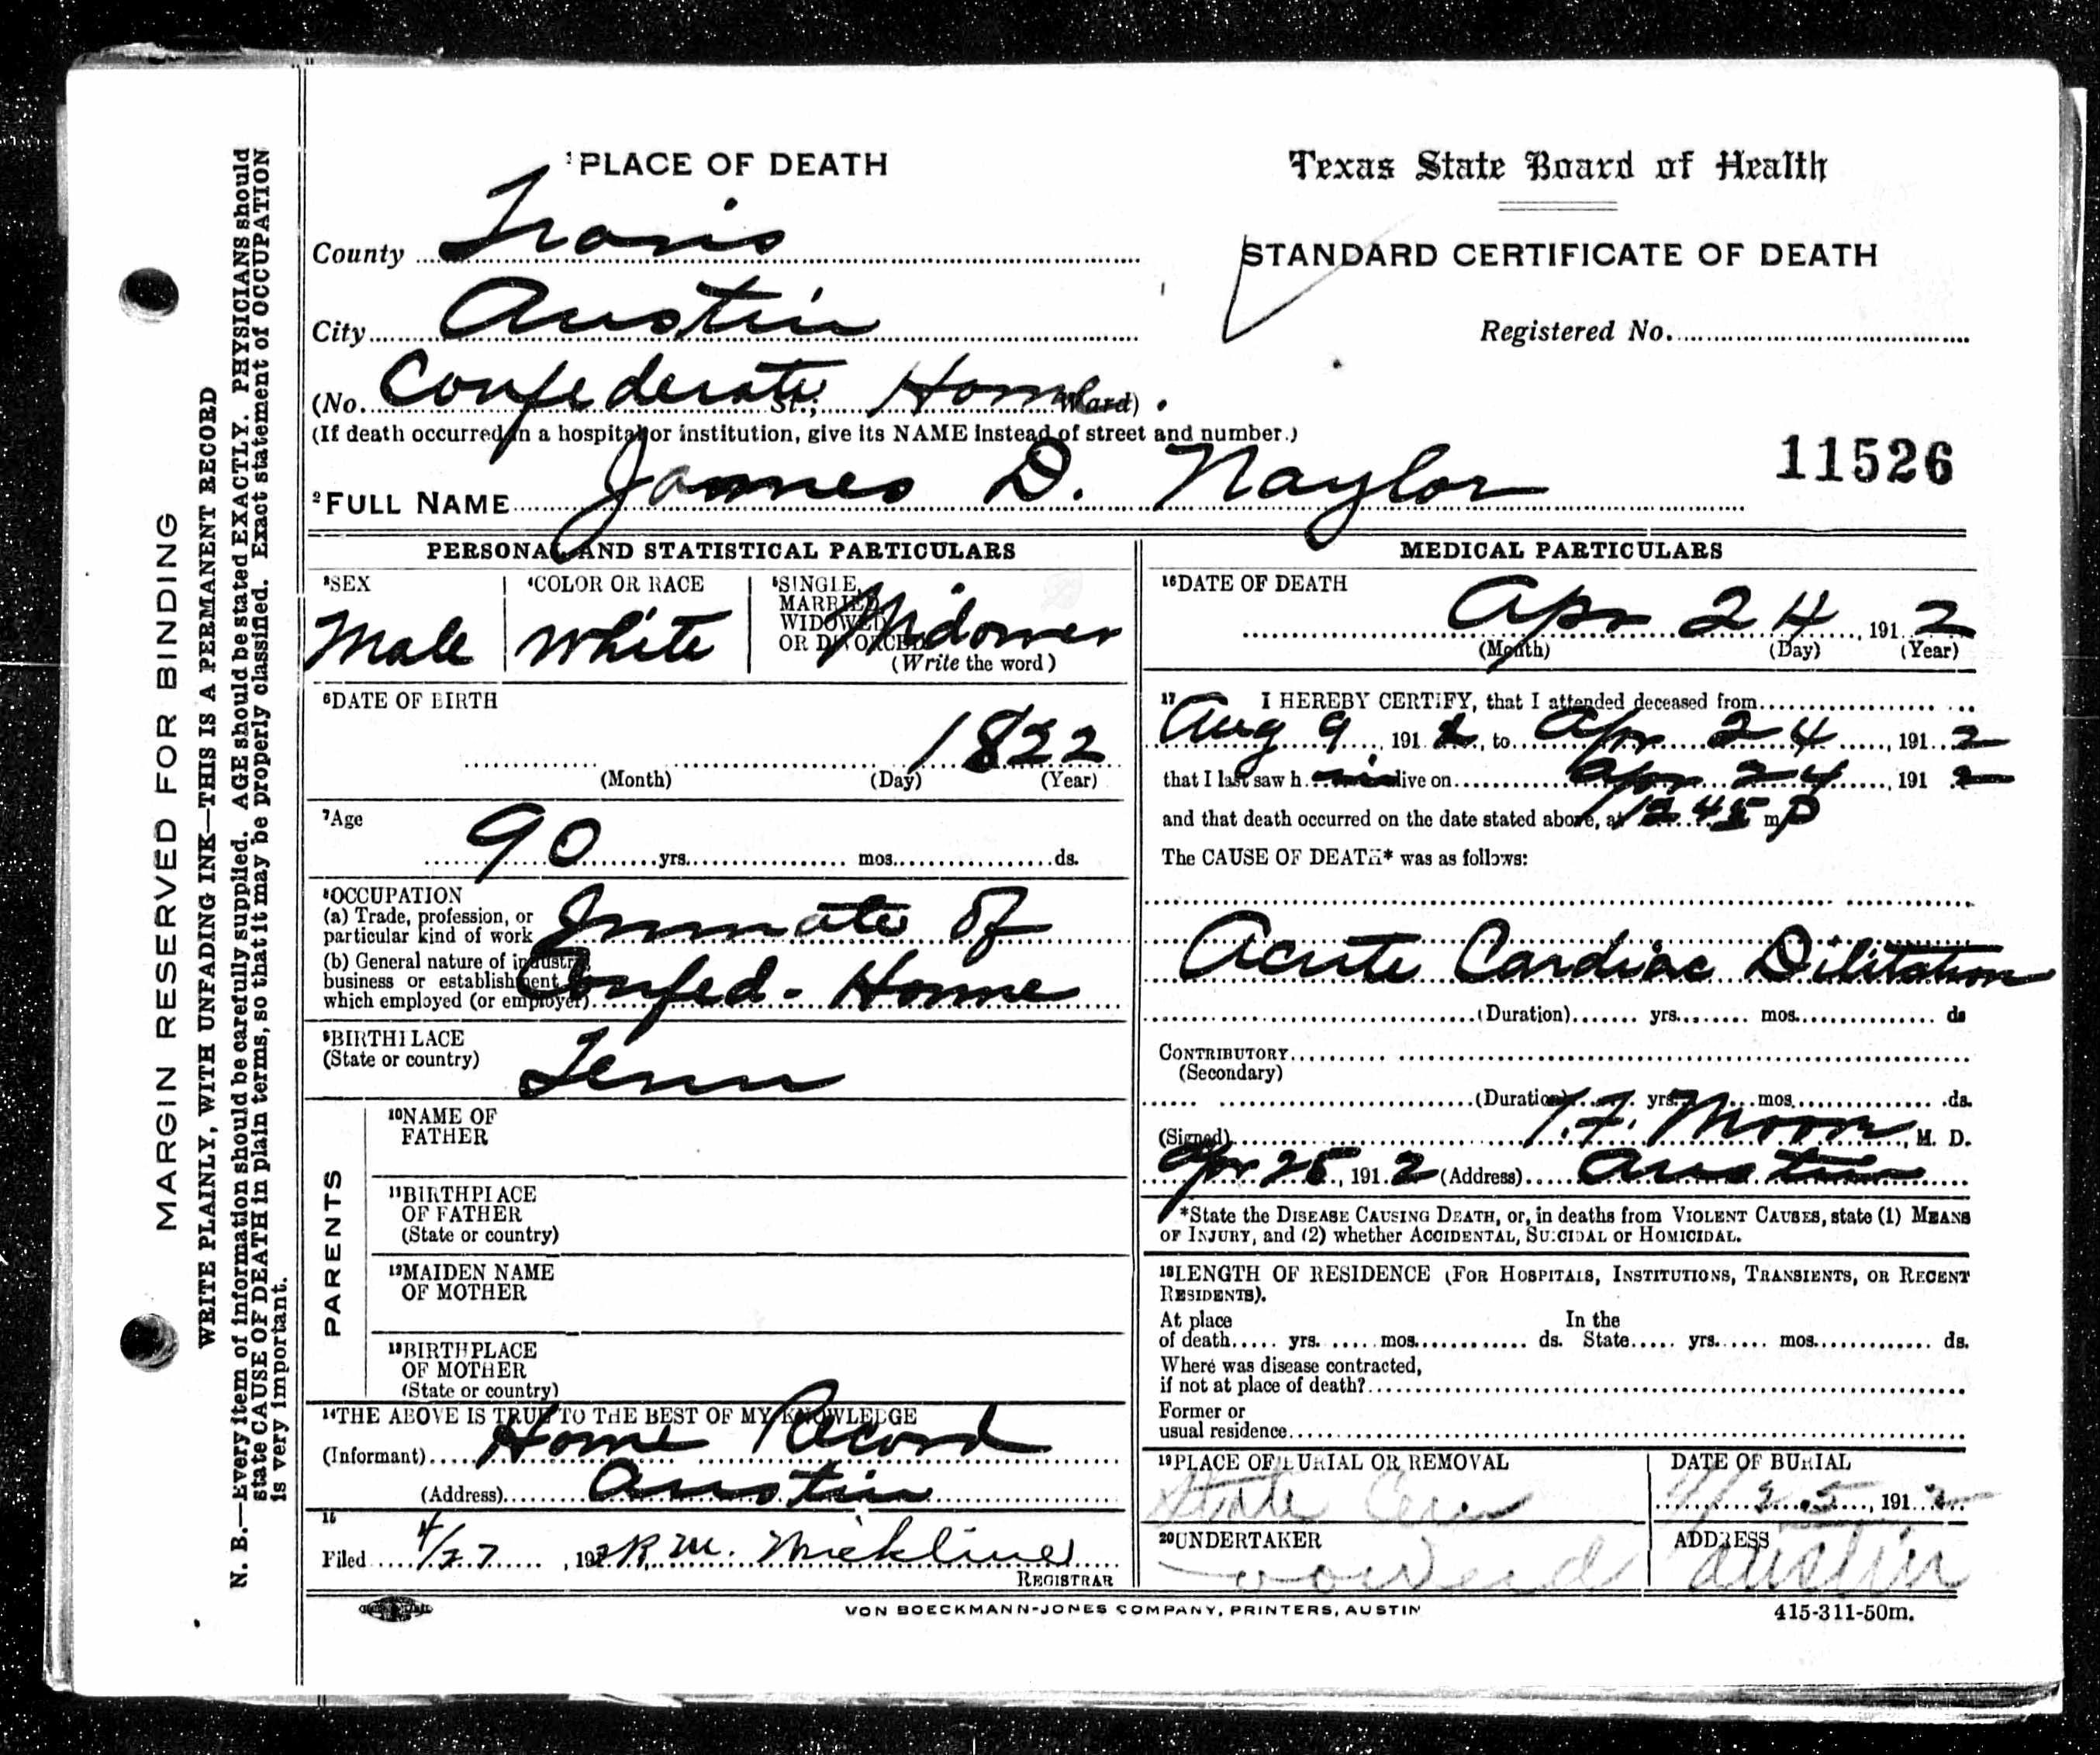 MARGIN RESERVED FOR BINDING
WRITE PLAINLY, WITH UNFADING INK—THIS IS A PERMANENT RECORD
N. B.—Every item of information should be carefully supplied. AGE should be stated EXACTLY. PHYSICIANS should
state CAUSE OF DEATH in plain terms, so that it may be properly classified. Exact statement of OCCUPATION
is very important.
1 PLACE OF DEATH
County Travis
City Austin
(No. Confederate St.; Home Ward)
(If death occurred in a hospital or institution, give its NAME instead of street and number.)
2 FULL NAME James D. Naylor
Texas State Board of Health
STANDARD CERTIFICATE OF DEATH
Registered No.
11526
PERSONAL AND STATISTICAL PARTICULARS
3 SEX
Male
4 COLOR OR RACE
White
5 SINGLE,
MARRIED,
WIDOWED
OR DIVORCED
Widower
(Write the word)
6 DATE OF BIRTH
1822
(Month) (Day) (Year)
7 Age
90 yrs. mos. ds.
8 OCCUPATION
(a) Trade, profession, or
particular kind of work Inmate of
(b) General nature of industry
business or establishment
which employed (or employer) Confed - Home
9 BIRTHPLACE
(State or country) Tenn
PARENTS
10 NAME OF
FATHER
11 BIRTHPLACE
OF FATHER
(State or country)
12 MAIDEN NAME
OF MOTHER
13 BIRTHPLACE
OF MOTHER
(State or country)
14 THE ABOVE IS TRUE TO THE BEST OF MY KNOWLEDGE
(Informant) Home Record
(Address) Austin
15
Filed 4/27, 1912 R. M.
REGISTRAR
MEDICAL PARTICULARS
16 DATE OF DEATH
Apr 24, 1912
(Month) (Day) (Year)
17 I HEREBY CERTIFY, that I attended deceased from
Aug 9, 191 , to Apr 24, 1912
that I last saw h im alive on Apr 24, 1912
and that death occurred on the date stated above, at 12 45 m P
The CAUSE OF DEATH* was as follows:
Acute Cardiac Dilitation
(Duration) yrs. mos. ds
CONTRIBUTORY
(Secondary)
(Duration) yrs. mos. ds.
(Signed) Moore, M. D.
Apr 25, 1912 (Address) Austin
*State the DISEASE CAUSING DEATH, or, in deaths from VIOLENT CAUSES, state (1) MEANS
OF INJURY, and (2) whether ACCIDENTAL, SUICIDAL or HOMICIDAL.
18 LENGTH OF RESIDENCE (FOR HOSPITALS, INSTITUTIONS, TRANSIENTS, OR RECENT
RESIDENTS).
At place In the
of death yrs. mos. ds. State yrs. mos. ds.
Where was disease contracted,
if not at place of death?
Former or
usual residence
19 PLACE OF BURIAL OR REMOVAL
State Cem
DATE OF BURIAL
4/25, 1912
20 UNDERTAKER
ADDRESS
Austin
VON BOECKMANN-JONES COMPANY, PRINTERS, AUSTIN
415-311-50m.